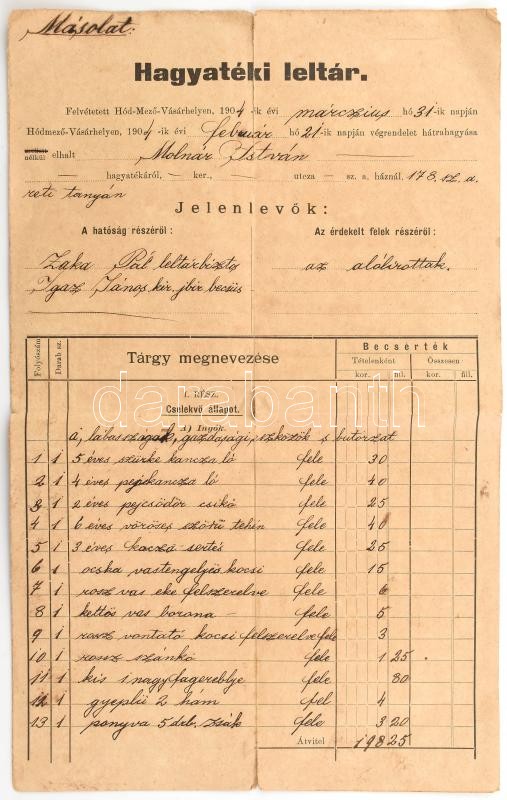 Másolat.
Hagyatéki leltár.
Felvétetett Hód-Mező-Vásárhelyen, 1904-ik évi márczius hó 31-ik napján
Hódmező-Vásárhelyen, 1904-ik évi február hó 21-ik napján végrendelet hátrahagyása
nélkül elhalt Molnár István
hagyatékáról, — ker., utcza — sz. a. háznál. 178. sz. a.
réti tanyán
Jelenlevők:
A hatóság részéről: Az érdekelt felek részéről:
Zaka Pál leltárbiztos az alólirottak.
Igaz János kir. jbir becsüs
Folyószám Darab sz. Tárgy megnevezése Becsérték
Tételenként Összesen
kor. fill. kor. fill.
I. RÉSZ.
Cselekvő állapot.
A) Ingók.
a, lábasjószágok, gazdasági eszközök s butorzat
1 1 5 éves szürke kancza ló fele 30
2 1 4 éves pejkancza ló fele 40
3 1 2 éves pejcsődör csikó fele 25
4 1 6 éves vöröses szőrü tehén fele 40
5 1 3 éves kocza sertés fele 25
6 1 ócska vastengelyes kocsi fele 15
7 1 rosz vas eke felszerelve fele 6
8 1 kettős vas borona — fele 5
9 1 rosz vontató kocsi felszerelve fele 3
10 1 rosz szánkó fele 1 25
11 1 kis 1 nagy fagereblye fele 80
12 1 gyeplü 2 hám fel 4
13 1 ponyva 5 drb. zsák fele 3 20
Átvitel 198 25
darabanth